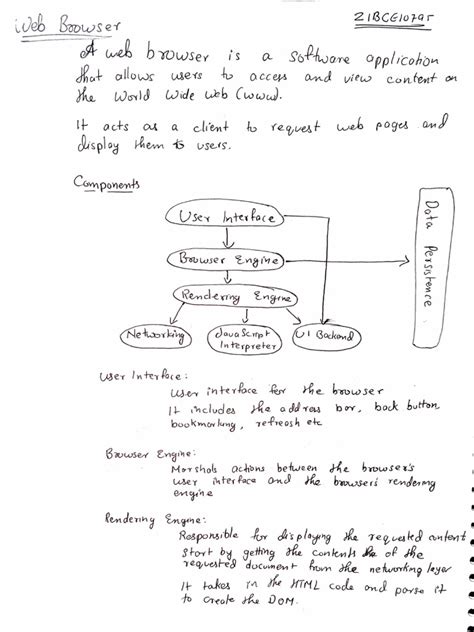 Web Browser
21BCE10795
A web browser is a software application
that allows users to access and view content on
the World Wide Web (www).
It acts as a client to request web pages and
display them to users.
Components
User Interface
Browser Engine
Rendering Engine
Networking
JavaScript
Interpreter
UI Backend
Data Persistence
User Interface:
User interface for the browser
It includes the address bar, back button
bookmarking, refresh etc
Browser Engine:
Marshals actions between the browser's
user interface and the browser's rendering
engine
Rendering Engine:
Responsible for displaying the requested content
start by getting the contents of the
requested document from the networking layer
It takes in the HTML code and parse it
to create the DOM.